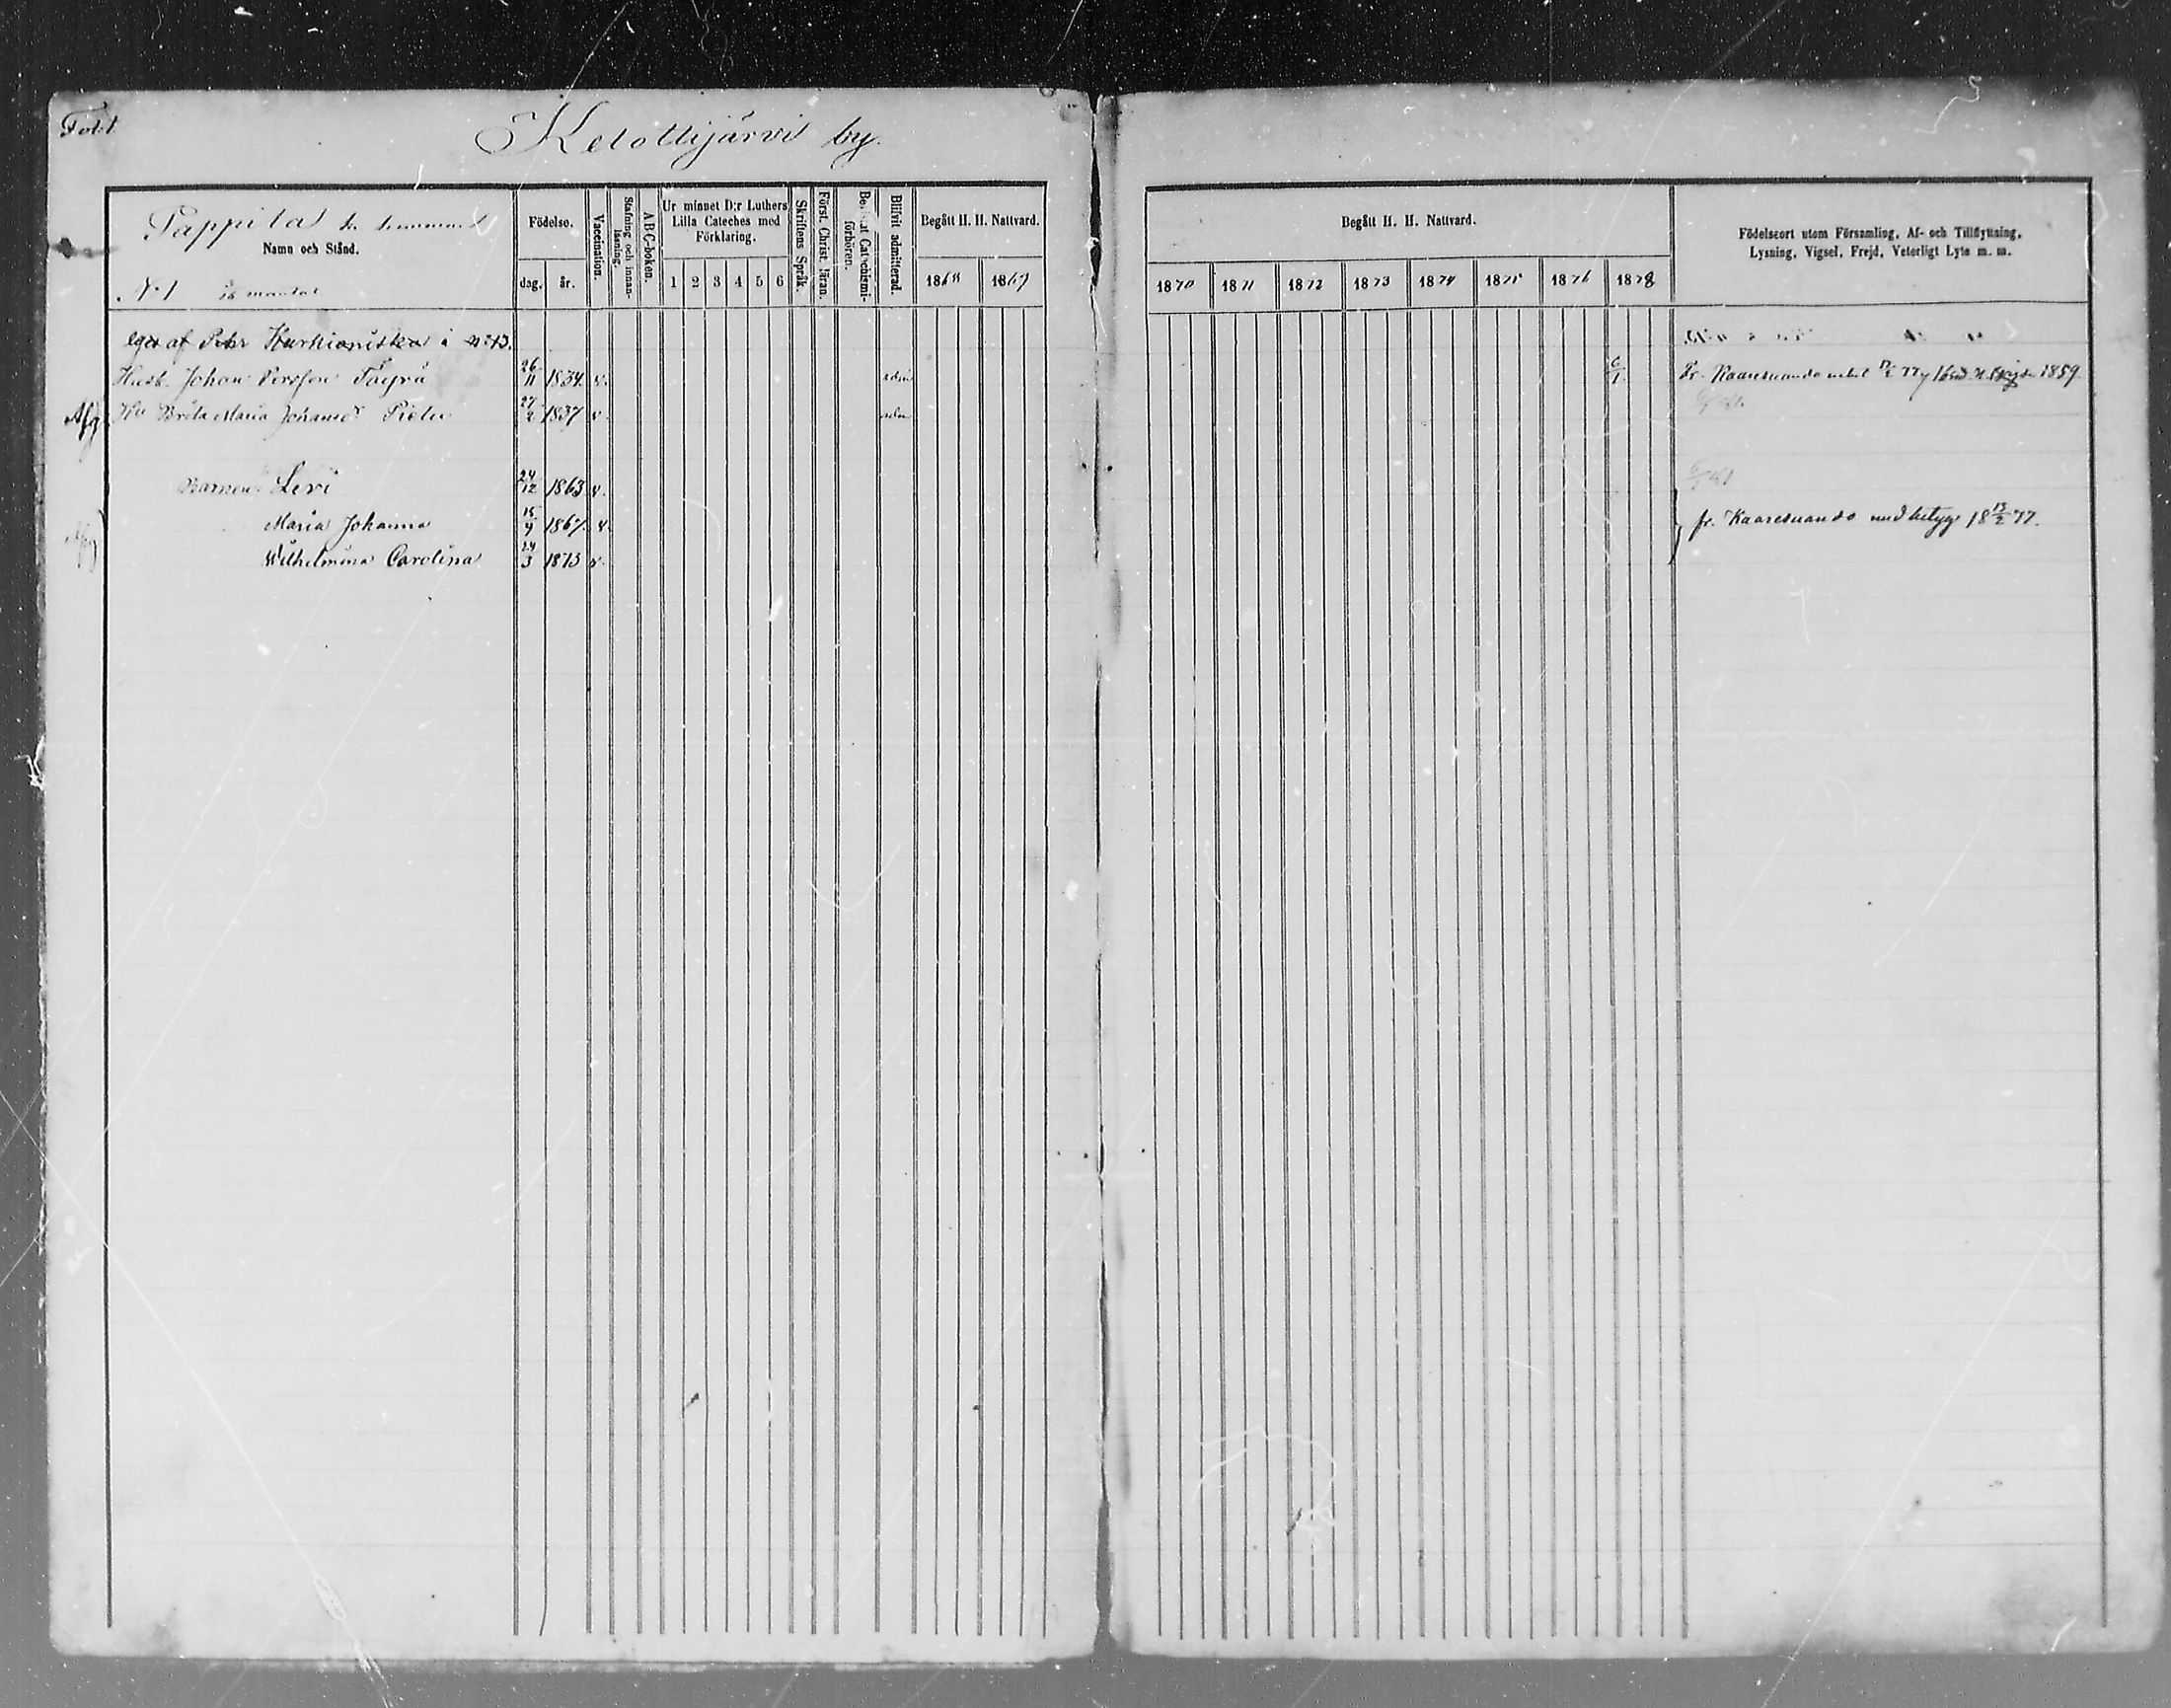 Fol. 1
Kelottijärvi by.
Pappila
Namn och Stånd.
N:o 1 mantal
Födelse.
dag. år.
Vaccination.
Stafning och innan-läsning.
A-B-C-boken.
Ur minnet D:r Luthers Lilla Cateches med Förklaring.
1 2 3 4 5 6
Skriftens Språk.
Först. Christ. läran.
Catechismi-förhören.
Blifvit admitterad.
Begått H. H. Nattvard.
1868 1869
Begått H. H. Nattvard.
1870 1871 1872 1873 1874 1875 1876 1878
Födelseort utom Församling, Af- och Tillflyttning,
Lysning, Vigsel, Frejd, Veterligt Lyte m. m.
eges af Pehr Kurkioniska i No 13.
Husb. Johan Persson 26/11 1834 v. adm 6/1 Fr. Kaaresuando 77 1859
Afg Hu Brita Maria Johansdr 27/2 1837 v. adm
Barnen: Levi 24/12 1863 v.
Maria Johanna 15/9 1867 v. fr. Kaaresuando med betyg 18 13/2 77.
Wilhelmina Carolina 24/3 1873 v.